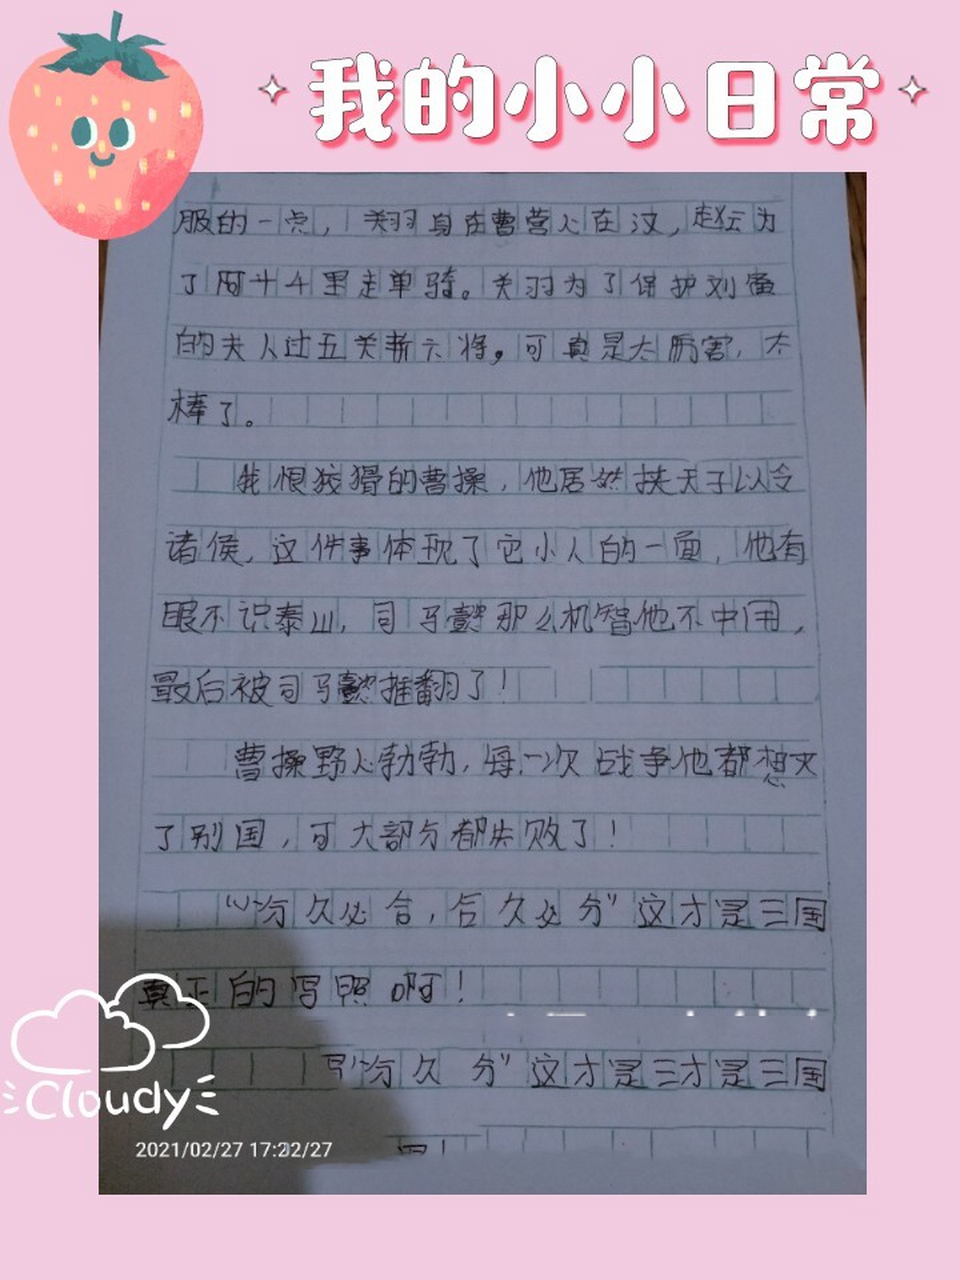 我的小小日常
服的一点，关羽身在曹营心在汉，赵云为
了阿斗千里走单骑。关羽为了保护刘备
的夫人过五关斩六将。可真是太厉害，太
棒了。
我恨狡猾的曹操，他居然挟天子以令
诸侯，这件事体现了它小人的一面，他有
眼不识泰山，司马懿那么机智他不中用，
最后被司马懿推翻了！
曹操野心勃勃，每一次战争他都想灭
了别国，可大部分都失败了！
“分久必合，合久必分”这才是三国
真正的写照啊！
分久 分”这才是三才是三国
Cloudy
2021/02/27 17:22/27